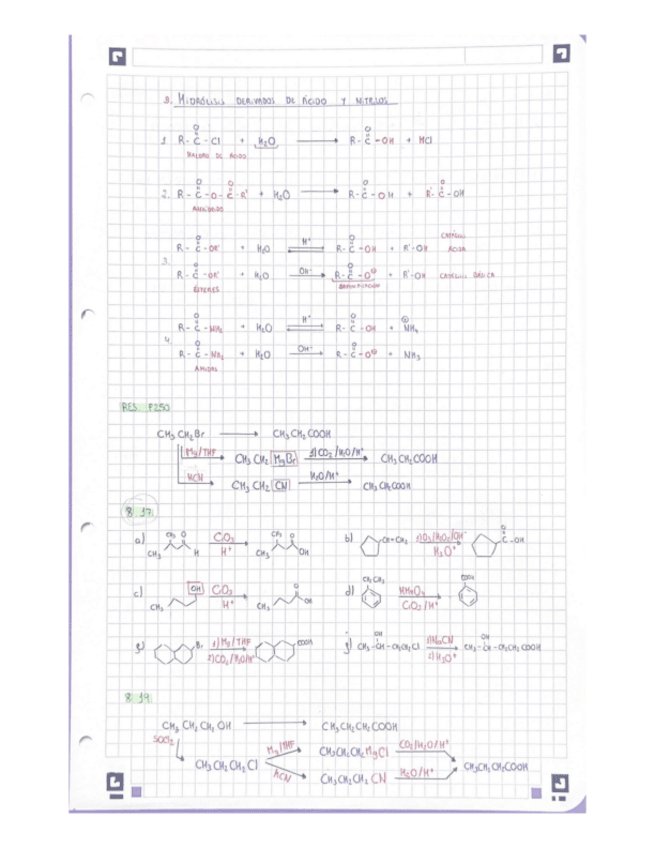 9. HIDRÓLISIS DERIVADOS DE ÁCIDO Y NITRILOS
1. R-C(=O)-Cl + H2O → R-C(=O)-OH + HCl
HALURO DE ÁCIDO
2. R-C(=O)-O-C(=O)-R' + H2O → R-C(=O)-OH + R'-C(=O)-OH
ANHÍDRIDO
R-C(=O)-OR' + H2O ⇌ H+ R-C(=O)-OH + R'-OH CATÁLISIS ÁCIDA
3.
R-C(=O)-OR' + H2O OH- → R-C(=O)-O⊖ + R'-OH CATÁLISIS BÁSICA
ÉSTERES SAPONIFICACIÓN
R-C(=O)-NH2 + H2O ⇌ H+ R-C(=O)-OH + ⊕NH4
4.
R-C(=O)-NH2 + H2O OH- → R-C(=O)-O⊖ + NH3
AMIDAS
RES P250
CH3CH2Br → CH3CH2COOH
Mg/THF CH3CH2MgBr 1)CO2/H2O/H+ → CH3CH2COOH
KCN CH3CH2CN H2O/H+ → CH3CH2COOH
8.17
a) CH3 CH3 O H CrO3 H+ → CH3 CH3 O OH
b) CH=CH2 1)O3/H2O2/OH- H3O+ → C(=O)-OH
c) CH3 OH CrO3 H+ → CH3 O OH
d) CH2CH3 KMnO4 CrO3/H+ → COOH
Br 1)Mg/THF 2)CO2/H2O/H+ → COOH
g) CH3-CH(OH)-CH2CH2Cl 1)NaCN 2)H3O+ → CH3-CH(OH)-CH2CH2COOH
8.19
CH3CH2CH2OH → CH3CH2CH2COOH
SOCl2 Mg/THF CH3CH2CH2MgCl CO2/H2O/H+
CH3CH2CH2Cl CH3CH2CH2COOH
KCN CH3CH2CH2CN H2O/H+